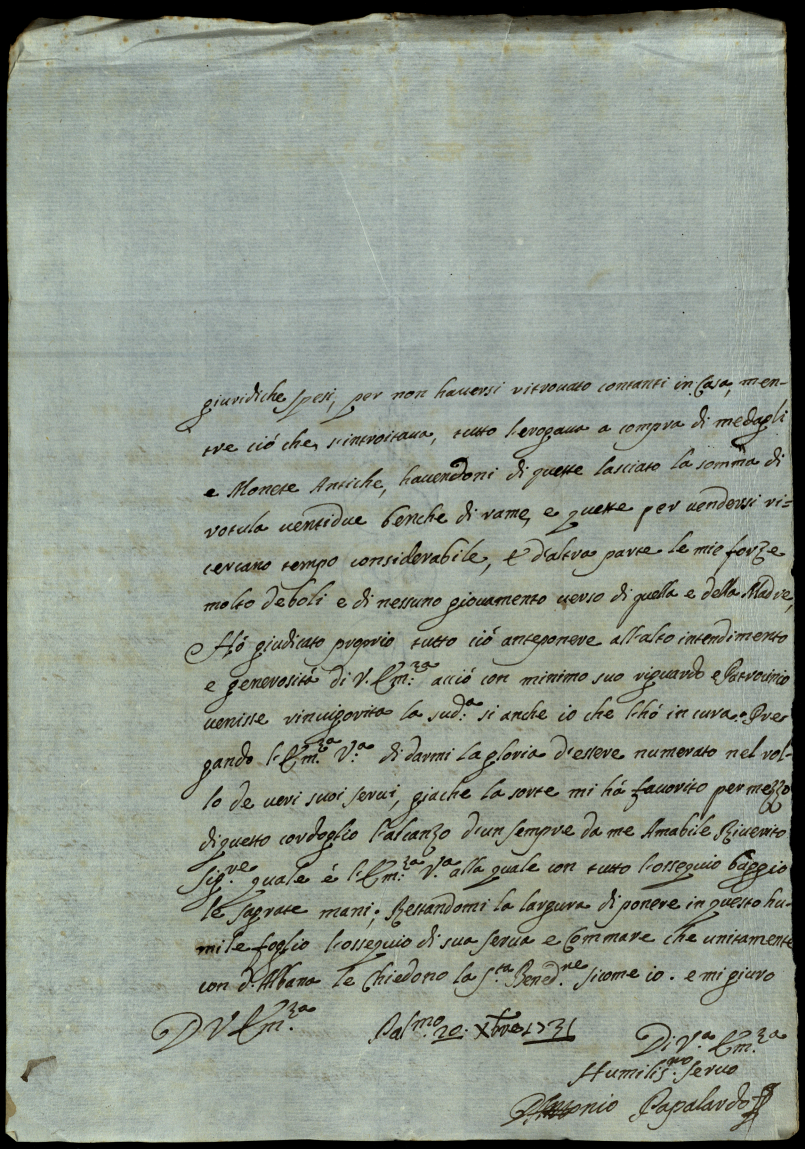 giuridiche spesi, per non haversi ritrovato contanti in Casa, men-
tre ciò che s'introitava, tutto l'erogava a compra di medagli
e Monete Antiche, havendoni di queste lasciato la somma di
rotula ventidue benche di rame, e queste per vendersi ri=
cercano tempo considerabile, e d'altra parte le mie forze
molto deboli e di nessuno giovamento verso di quella e della Madre,
Hò giudicato proprio tutto ciò anteponere all'alto intendimento
e generosità di V. Em.za acciò con minimo suo riguardo e Patrocinio
venisse rinvigorita la sud.a si anche io che l'hò in cura. Pre
gando l'Em.za V.a di darmi la gloria d'essere numerato nel rol-
lo de veri suoi servi, giache la sorte mi hà favorito per mezzo
di questo cordoglio l'alcanzo d'un sempre da me Amabile Riverito
Sig.re quale è l'Em.za V.a alla quale con tutto l'ossequio baggio
le sagrate mani; Restandomi la largura di ponere in questo hu-
mile foglio l'ossequio di sua serva e Commare che unitamente
con d. Albana le Chiedono la S.ta Bened.ne sicome io. e mi giuro
D V Em.za Pal.mo 20. Xbre 1731
Di V.a Em.za
Humilis.mo Servo
D. Antonio Papalardo